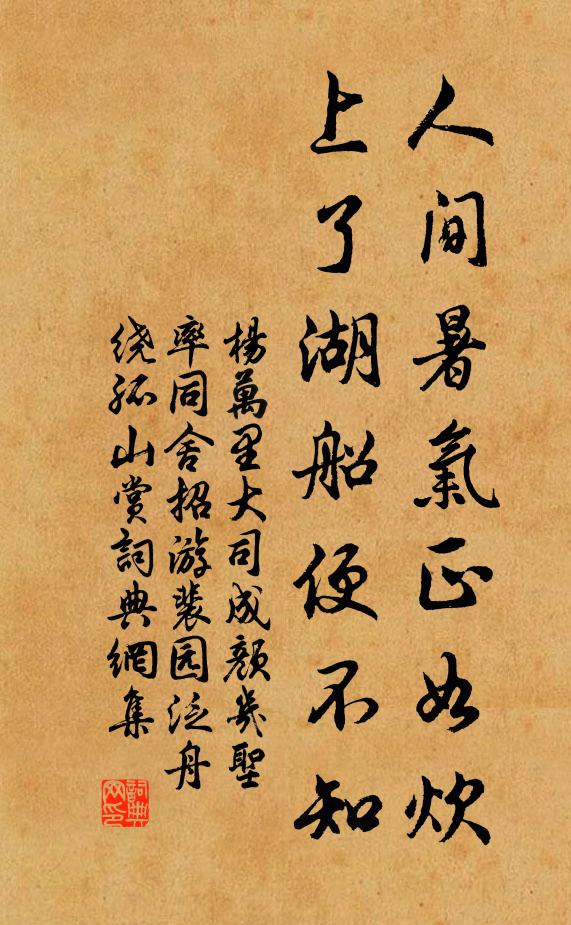 人间暑氣正如炊
上了湖船便不知
楊萬里大司成颜幾聖
率同舍招游裴园泛舟
绕孤山赏詞典網集
詞典网印